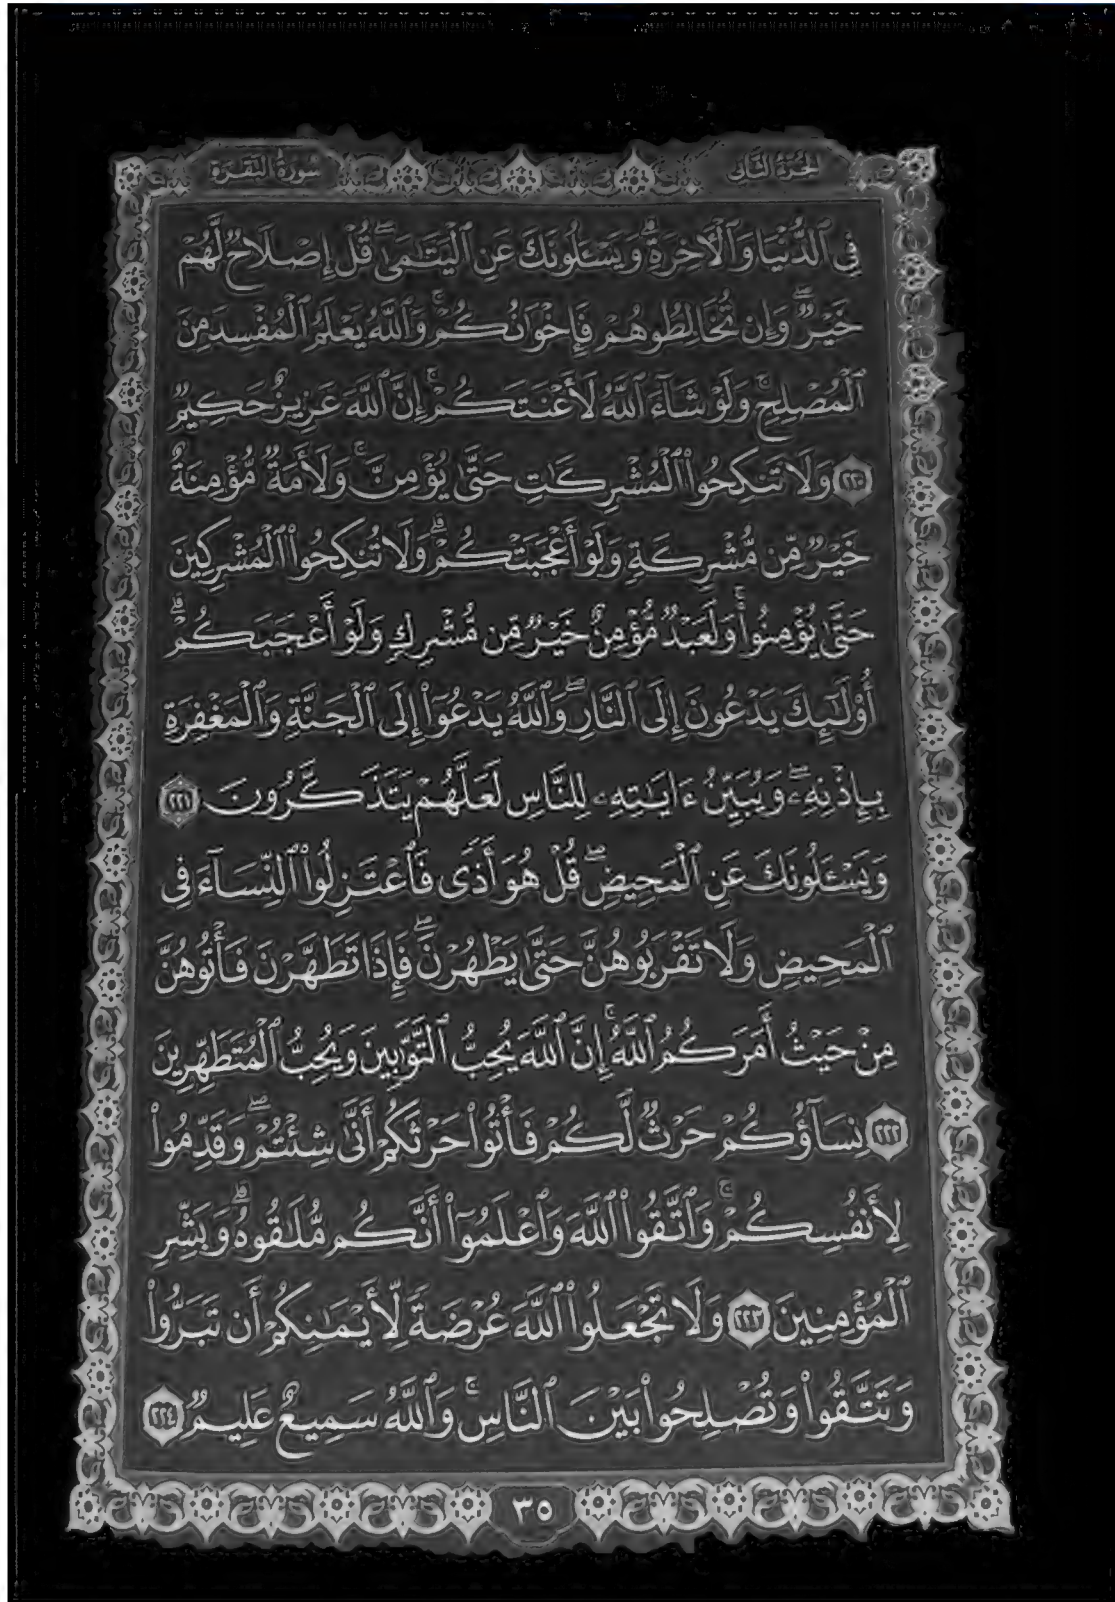 الجزء الثاني
سورة البقرة
فِي ٱلدُّنْيَا وَٱلْـَٔاخِرَةِۗ وَيَسْـَٔلُونَكَ عَنِ ٱلْيَتَـٰمَىٰۖ قُلْ إِصْلَاحٌ لَّهُمْ
خَيْرٌۖ وَإِن تُخَالِطُوهُمْ فَإِخْوَٰنُكُمْۚ وَٱللَّهُ يَعْلَمُ ٱلْمُفْسِدَ مِنَ
ٱلْمُصْلِحِۚ وَلَوْ شَآءَ ٱللَّهُ لَأَعْنَتَكُمْۚ إِنَّ ٱللَّهَ عَزِيزٌ حَكِيمٌ
٢٢٠ وَلَا تَنكِحُوا۟ ٱلْمُشْرِكَـٰتِ حَتَّىٰ يُؤْمِنَّۚ وَلَأَمَةٌ مُّؤْمِنَةٌ
خَيْرٌ مِّن مُّشْرِكَةٍ وَلَوْ أَعْجَبَتْكُمْۗ وَلَا تُنكِحُوا۟ ٱلْمُشْرِكِينَ
حَتَّىٰ يُؤْمِنُوا۟ۚ وَلَعَبْدٌ مُّؤْمِنٌ خَيْرٌ مِّن مُّشْرِكٍ وَلَوْ أَعْجَبَكُمْۗ
أُو۟لَـٰٓئِكَ يَدْعُونَ إِلَى ٱلنَّارِۖ وَٱللَّهُ يَدْعُوٓا۟ إِلَى ٱلْجَنَّةِ وَٱلْمَغْفِرَةِ
بِإِذْنِهِۦۖ وَيُبَيِّنُ ءَايَـٰتِهِۦ لِلنَّاسِ لَعَلَّهُمْ يَتَذَكَّرُونَ ٢٢١
وَيَسْـَٔلُونَكَ عَنِ ٱلْمَحِيضِۖ قُلْ هُوَ أَذًى فَٱعْتَزِلُوا۟ ٱلنِّسَآءَ فِي
ٱلْمَحِيضِ وَلَا تَقْرَبُوهُنَّ حَتَّىٰ يَطْهُرْنَۖ فَإِذَا تَطَهَّرْنَ فَأْتُوهُنَّ
مِنْ حَيْثُ أَمَرَكُمُ ٱللَّهُۚ إِنَّ ٱللَّهَ يُحِبُّ ٱلتَّوَّٰبِينَ وَيُحِبُّ ٱلْمُتَطَهِّرِينَ
٢٢٢ نِسَآؤُكُمْ حَرْثٌ لَّكُمْ فَأْتُوا۟ حَرْثَكُمْ أَنَّىٰ شِئْتُمْۖ وَقَدِّمُوا۟
لِأَنفُسِكُمْۚ وَٱتَّقُوا۟ ٱللَّهَ وَٱعْلَمُوٓا۟ أَنَّكُم مُّلَـٰقُوهُۗ وَبَشِّرِ
ٱلْمُؤْمِنِينَ ٢٢٣ وَلَا تَجْعَلُوا۟ ٱللَّهَ عُرْضَةً لِّأَيْمَـٰنِكُمْ أَن تَبَرُّوا۟
وَتَتَّقُوا۟ وَتُصْلِحُوا۟ بَيْنَ ٱلنَّاسِۚ وَٱللَّهُ سَمِيعٌ عَلِيمٌ ٢٢٤
٣٥